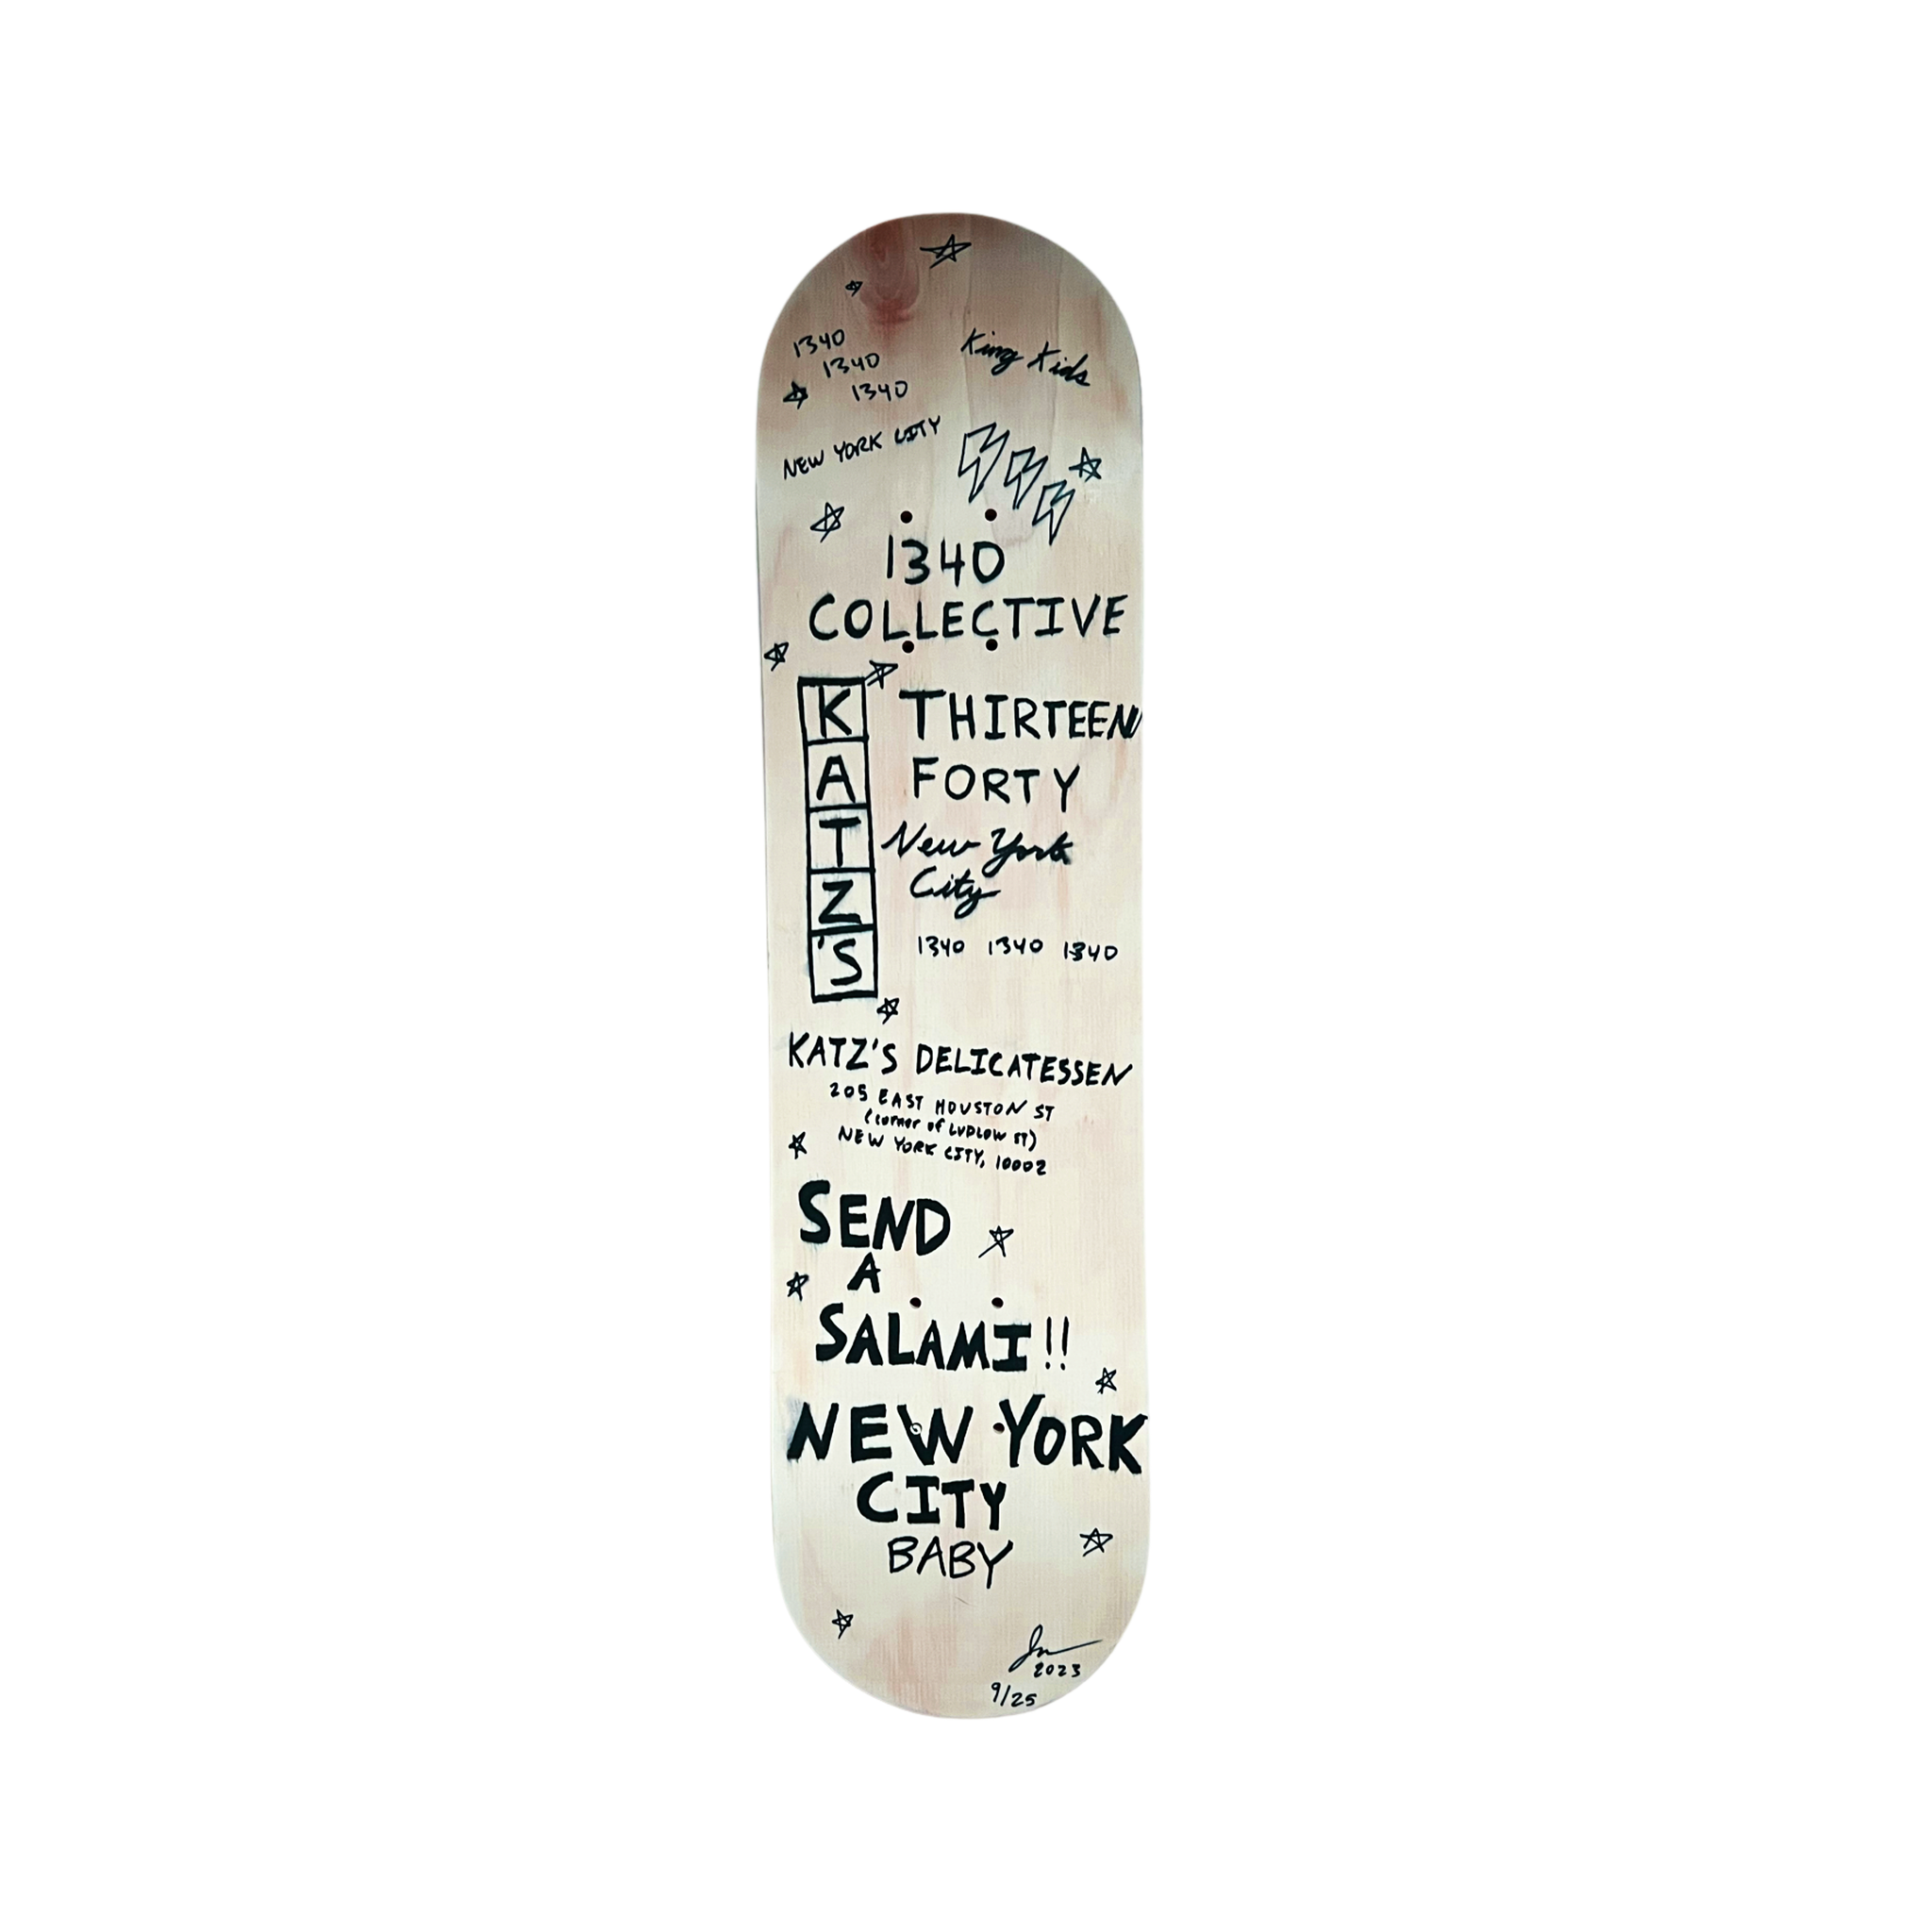 1340
1340
1340
King Kids
NEW YORK CITY
1340
COLLECTIVE
KATZ'S
THIRTEEN
FORTY
New York
City
1340 1340 1340
KATZ'S DELICATESSEN
205 EAST HOUSTON ST
(corner of LUDLOW ST)
NEW YORK CITY, 10002
SEND
A
SALAMI!!
NEW YORK
CITY
BABY
2023
9/25